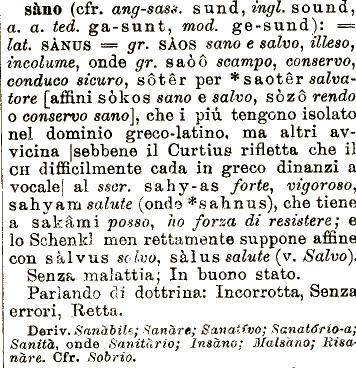 sàno (cfr. ang-sass. sund, ingl. sound,
a. a. ted. ga-sunt, mod. ge-sund): =
lat. SÀNUS = gr. SÀOS sano e salvo, illeso,
incolume, onde gr. saòô scampo, conservo,
conduco sicuro, sôtêr per *saotêr salva-
tore [affini sòkos sano e salvo, sòzô rendo
o conservo sano], che i piú tengono isolato
nel dominio greco-latino, ma altri av-
vicina |sebbene il Curtius rifletta che il
CH difficilmente cada in greco dinanzi a
vocale| al sscr. sahy-as forte, vigoroso,
sahyam salute (onde *sahnus), che tiene
a sakâmi posso, ho forza di resistere; e
lo Schenkl men rettamente suppone affine
con sàlvus salvo, sàlus salute (v. Salvo).
Senza malattia; In buono stato.
Parlando di dottrina: Incorrotta, Senza
errori, Retta.
Deriv. Sanàbile; Sanàre; Sanatívo; Sanatório-a;
Sanità, onde Sanitàrio; Insàno; Malsàno; Risa-
nàre. Cfr. Sobrio.